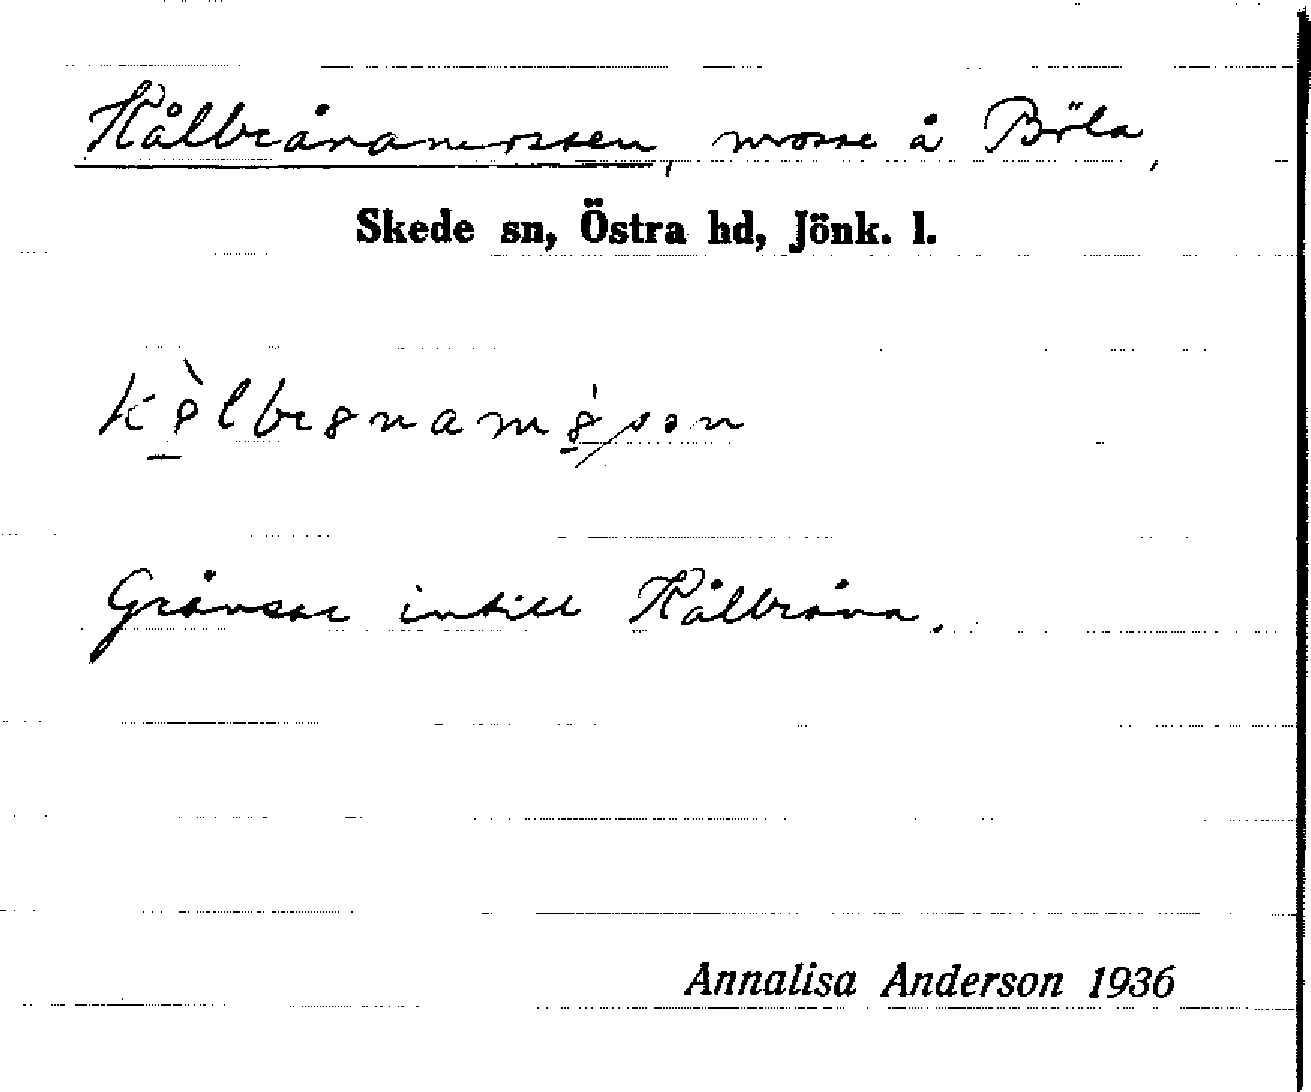 Kålbrånamossen, mosse å Böla,
Skede sn, Östra hd, Jönk. l.
Gränsar intill Kålbråna.
Annalisa Anderson 1936